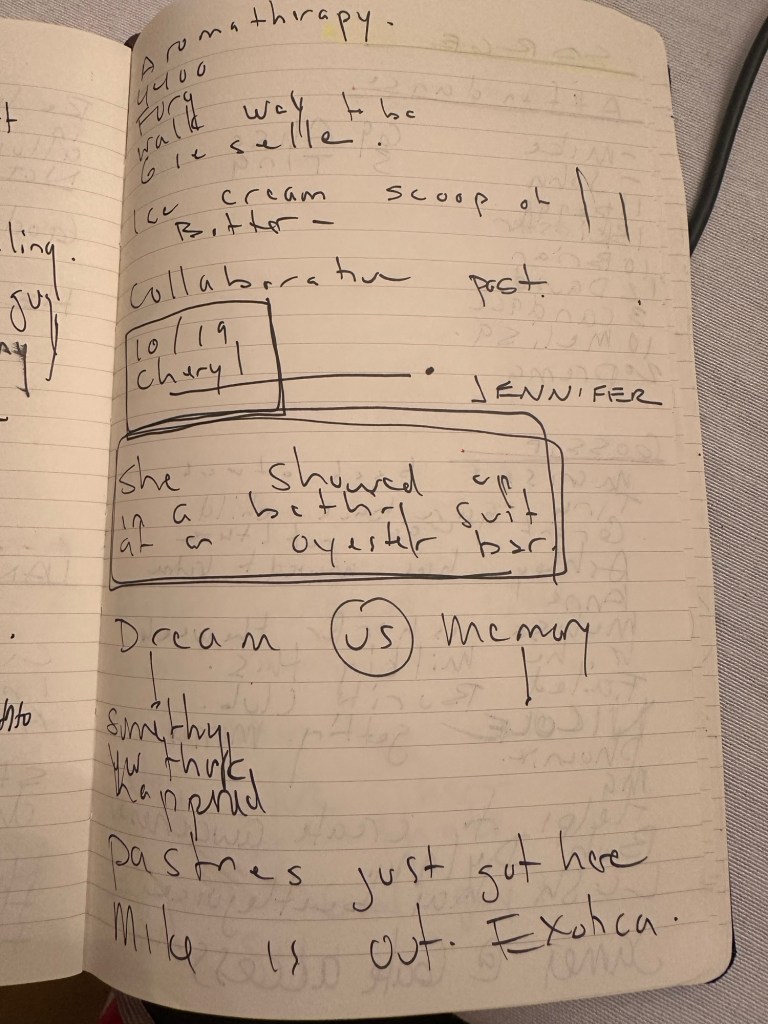 Aromathirapy.
4400
Fury
walk way to be
Giselle.
Ice cream scoop of
Butter -
Collaborative past.
10/19
Cheryl
JENNIFER
She showed up
in a bathing suit
at an oyester bar
Dream VS Memory
something
you think
happened
pastries just got here
Mike is out. Exotica.
ling.
guy